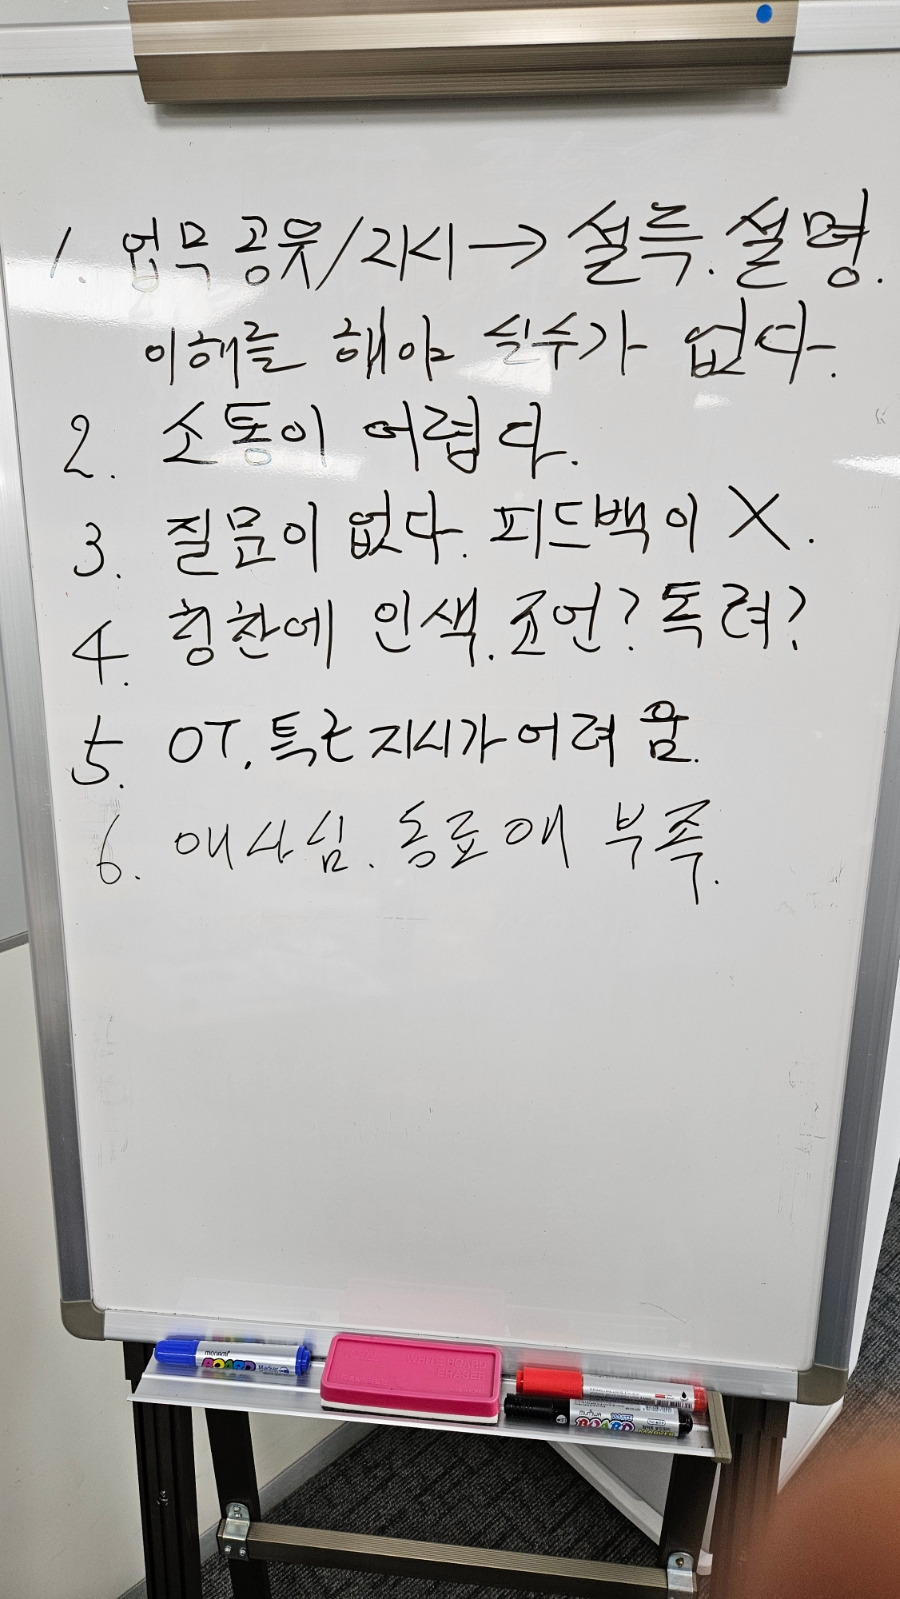 1. 업무 공유/지시 → 설득. 설명.
이해를 해야 실수가 없다.
2. 소통이 어렵다.
3. 질문이 없다. 피드백이 X.
4. 칭찬에 인색. 조언? 독려?
5. OT, 특근 지시가 어려움.
6. 애사심. 동료애 부족.
monami BOARD Marker
WHITE BOARD
ERASER
BOARD